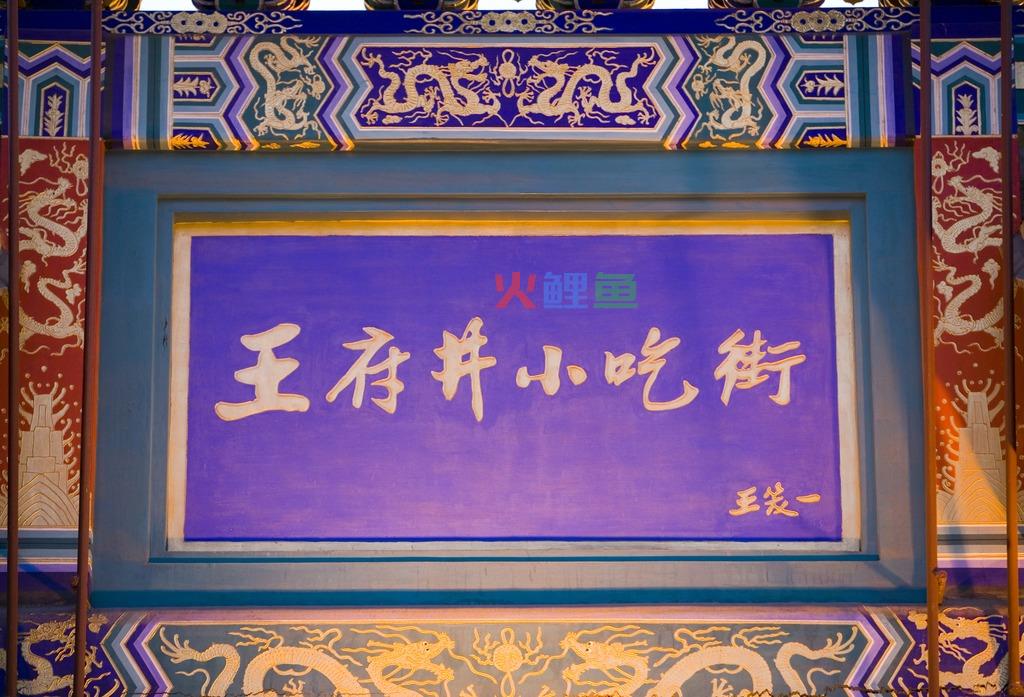 火鲤鱼
王府井小吃街
王笈一